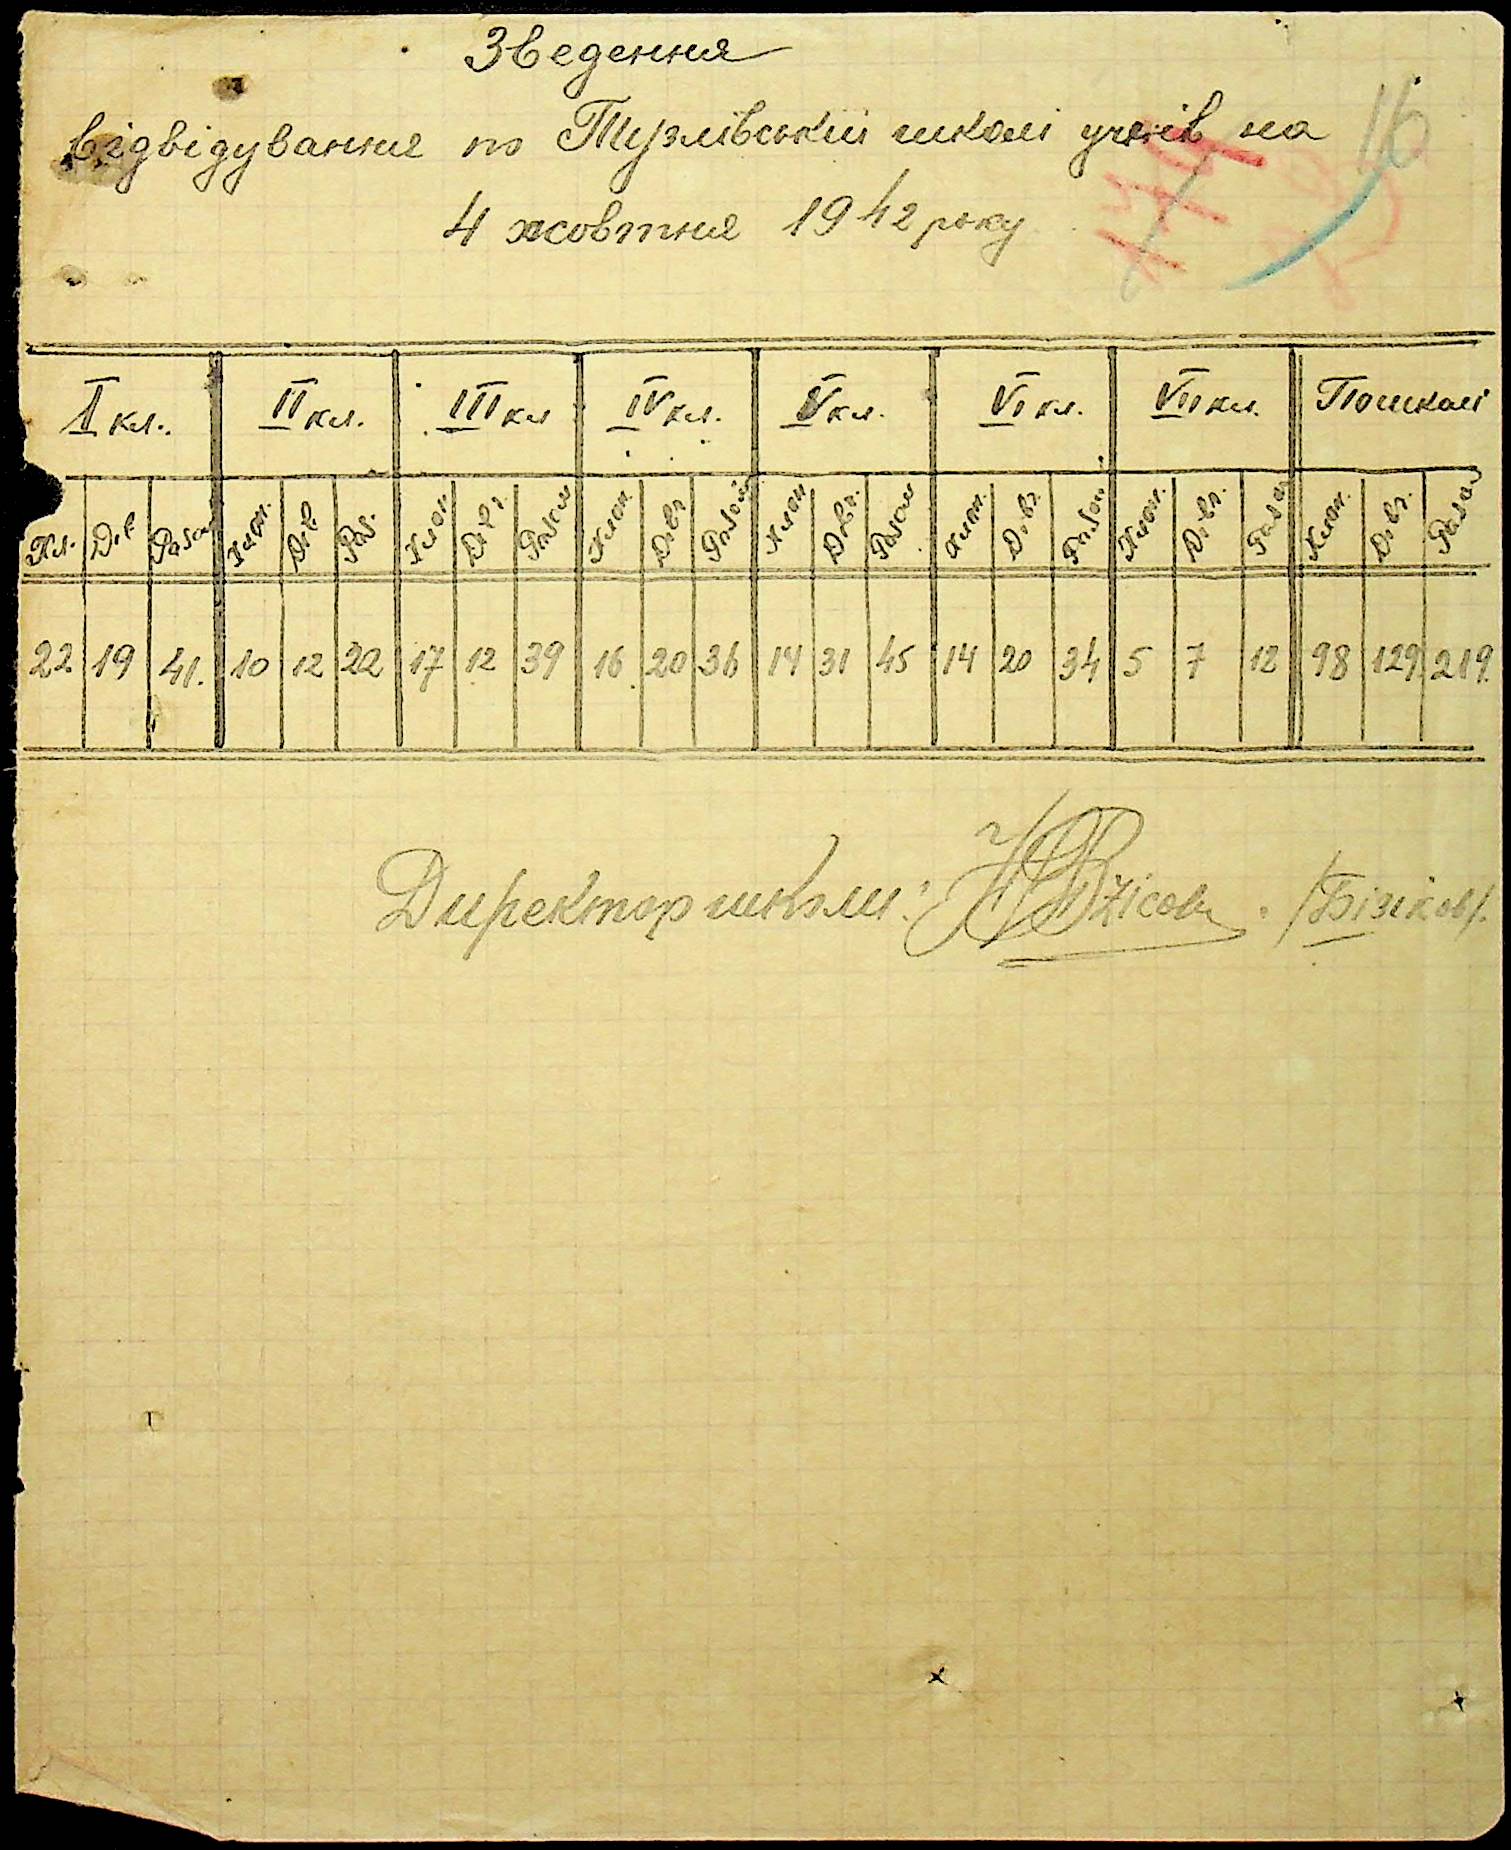 Зведення
відвідування по Тузлівській школі учнів на
4 жовтня 1942 року
16
I кл. II кл. III кл IV кл. V кл. VI кл. VII кл. По школі
Хл. Дів Разом Хлоп. Дів Раз. Хлоп Дівч. Разом Хлоп. Дівч Разом Хлоп Дівч. Разом Хлоп. Дівч. Разом Хлоп. Дівч. Разом Хлоп. Дівч. Разом
22 19 41. 10 12 22 17 12 39 16 20 36 14 31 45 14 20 34 5 7 12 98 129 219.
Директор школи: /Бізіков/.